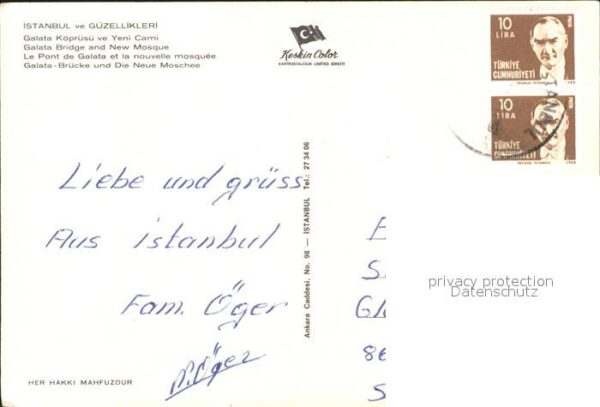 İSTANBUL ve GÜZELLİKLERİ
Galata Köprüsü ve Yeni Cami
Galata Bridge and New Mosque
Le Pont de Galata et la nouvelle mosquée
Galata-Brücke und Die Neue Moschee
Keskin Color
KARTPOSTALCILIK LİMİTED ŞİRKETİ
10 LİRA
TÜRKİYE
CUMHURİYETİ
10 LİRA
TÜRKİYE
CUMHURİYETİ
İSTANBUL
Liebe und grüss
Aus istanbul
Fam. Öger
Öger
Ankara Caddesi, No. 98 — İSTANBUL Tel.: 27 34 06
E
S
Gla
86
S
privacy protection
Datenschutz
HER HAKKI MAHFUZDUR